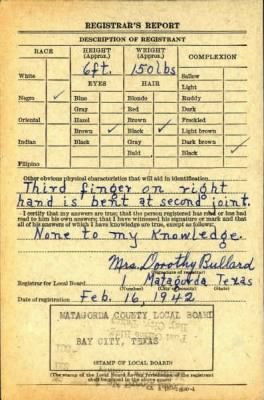 REGISTRAR'S REPORT
DESCRIPTION OF REGISTRANT
RACE HEIGHT (Approx.) WEIGHT (Approx.) COMPLEXION
6ft. 150lbs
White EYES HAIR Sallow
Light
Negro ✓ Blue Blonde Ruddy
Gray Red Dark
Oriental Hazel Brown Freckled
Brown ✓ Black ✓ Light brown
Indian Black Gray Dark brown
Bald Black ✓
Filipino
Other obvious physical characteristics that will aid in identification
Third finger on right
hand is bent at second joint.
I certify that my answers are true; that the person registered has read or has had
read to him his own answers; that I have witnessed his signature or mark and that
all of his answers of which I have knowledge are true, except as follows:
None to my knowledge.
Mrs. Dorothy Bullard
(Signature of registrar)
Registrar for Local Board Matagorda Texas
(Number) (City or County) (State)
Date of registration Feb. 16, 1942
MATAGORDA COUNTY LOCAL BOARD
BAY CITY, TEXAS
(STAMP OF LOCAL BOARD)
(The stamp of the Local Board having jurisdiction of the registrant
shall be placed in the above space)